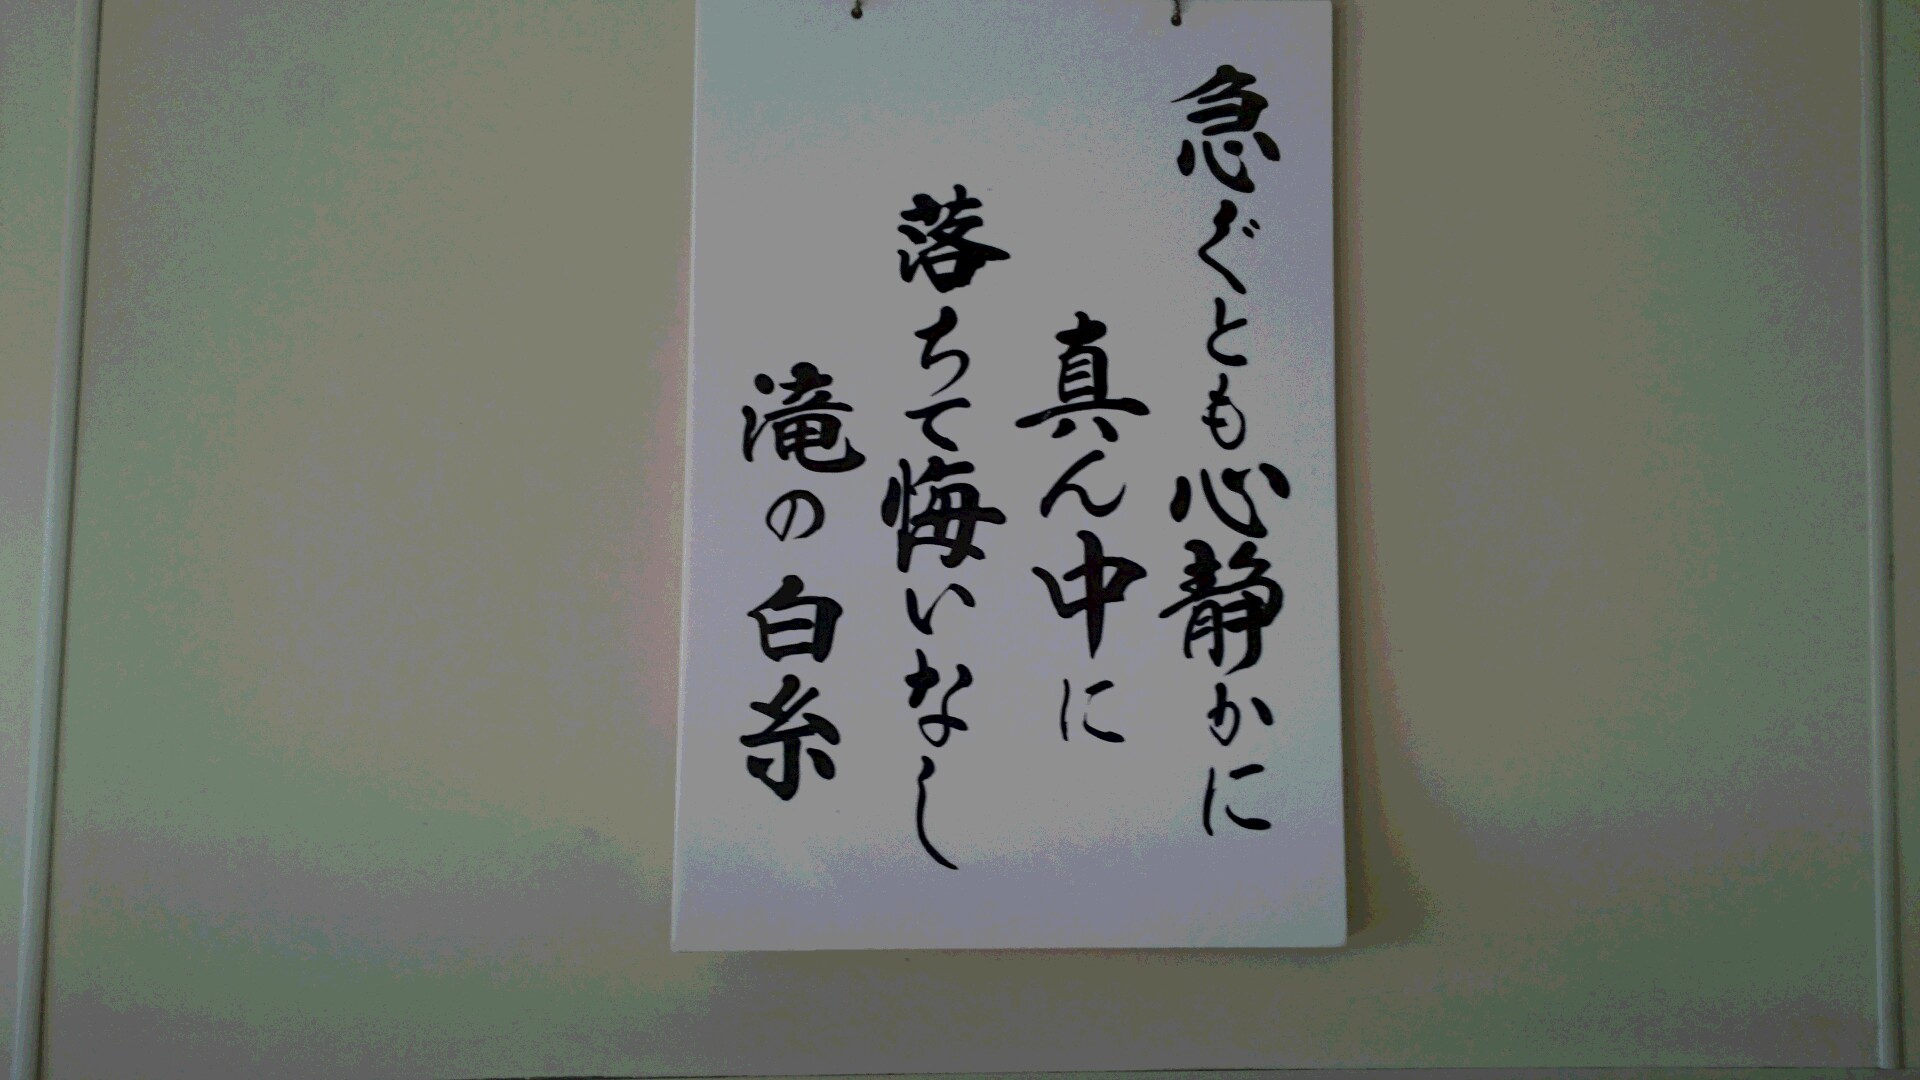 急ぐとも心静かに
真ん中に
落ちて悔いなし
滝の白糸